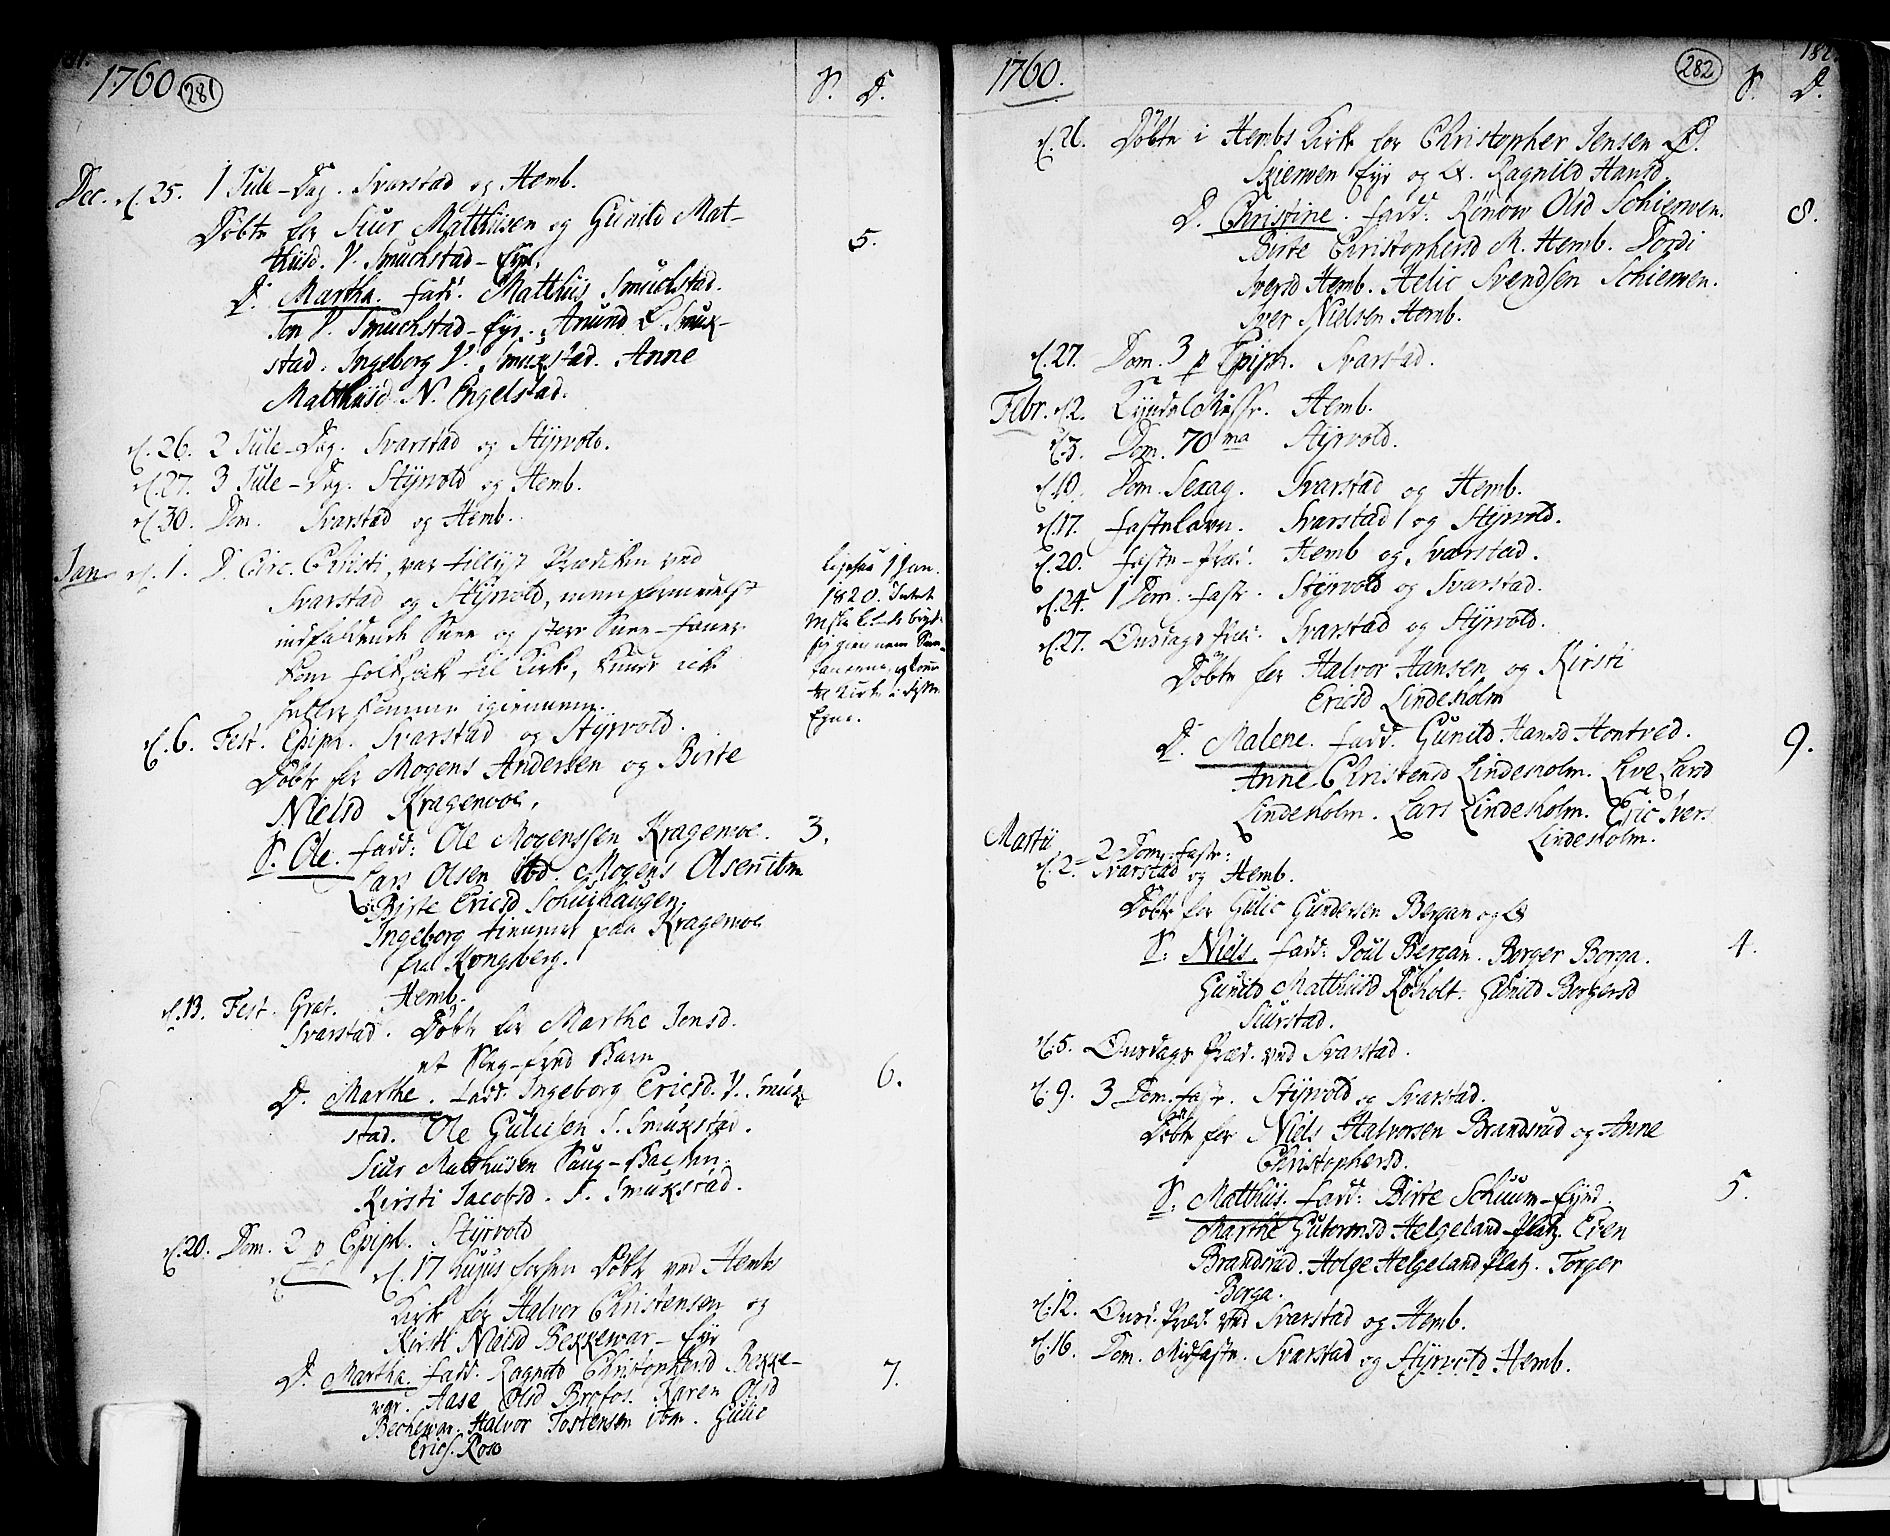 1760. 281
S. D.
Dec. d. 25. 1 Jule-Dag. Svarstad og Hemb.
Døbte for Siur Matthisen og Gunild Mat-
thisd. V. Smuchstad-Eye.
5.
D. Martha. Fadd. Matthis Smuchstad.
Jon V. Smuchstad-Eye. Anund Smuk-
stad. Ingeborg V. Smukstad. Anne
Matthisd. N. Engelstad.
d. 26. 2 Jule-Dag. Svarstad og Styrvold.
d. 27. 3 Jule-Dag. Styrvold og Hemb.
d. 30. Dom. Svarstad og Hemb.
Jan. d. 1. D. Circ. Christi, var tillyst Prædiken ved
Svarstad og Styrvold, men formedelst
indfaldende Snee og stor Snee-
kom Folk ick til Kirke, kunde ick
heller komme igiennem.
ligesaa 1 Jan.
1820.
d. 6. Fest. Epiph. Svarstad og Styrvold.
Døbte for Mogens Andersen og Birte
Nielsd Kragemoe.
S. Ole. Fadd: Ole Mogenssen Kragemoe. 3.
Lars Olsen ibd. Mogens Olsen ibm
Birte Ericsd Schuihaugen.
Ingeborg tienner paa Kragemoe
fra Kongsberg.
d. 13. Fest. Grat. Hemb.
Svarstad. Døbte for Marthe Jensd.
et Sleg-fred Barn
6.
D. Marthe. Fadd: Ingeborg Ericsd. V. Smuk-
stad. Ole Gulusen S. Smukstad.
Siur Matthisen Saug-Backen.
Kirsti Jacobsd. S. Smukstad.
d. 20. Dom. 2 p Epiph. Styrvold
d. 17 hujus forhen Døbt ved Hembs
Kirke for Halvor Christensen og
Kirsti Nielsd Bekkewar-Eye
D. Martha. Fadd. Ragnild Christophersd Bekke- 7.
var. Aase Olsd Brofos. Karen Olsd
Beckewar. Halvor Tostensen ibm. Gulic
Erics. Roe
1760. 282
S. D.
d. 26. Døbte i Hembs Kirke for Christopher Jensen
Skierven Eye og Ragnild Hansd.
D. Christine. Fadd: Rønow Olsd Schierven. 8.
Birte Christophersd M. Hemb. Dordi
Iversd Hemb. Helie Svendsen Schierven.
Iver Nielsen Hemb.
d. 27. Dom. 3 p Epiph. Svarstad.
Febr. d. 2. Kyndel Misse. Hemb.
d. 3. Dom. 70 ma Styrvold.
d. 10. Dom. Sexag. Svarstad og Hemb.
d. 17. Fastelavn. Svarstad og Styrvold.
d. 20. Faste-Præd. Hemb og Svarstad.
d. 24. 1 Dom. Faste. Styrvold og Svarstad.
d. 27. Onsdags Præd. Svarstad og Styrvold.
Døbte for Halvor Hansen og Kirsti
Ericsd Lindeholm
D. Malene. Fadd. Gunild Hansd Hontved. 9.
Anne Christensd Lindeholm. Live Larsd
Lindeholm. Lars Lindeholm. Eric Ivers
Lindeholm.
Martii
d. 2. 2 Dom. Faste:
Svarstad og Hemb.
Døbte for Gulic Gundersen Bergan og
S: Niels. Fadd: Poul Bergan. Borger Borga. 4.
Gunild Matthisd Røsholt. Gunild Borgersd
Siurstad.
d. 5. Onsdags Præd. ved Svarstad.
d. 9. 3 Dom. Faste. Styrvold og Svarstad.
Døbte for Niels Halvorsen Brandsrud og Anne
Christophersd.
S. Matthis. Fadd: Birte Schuum-Eyed. 5.
Marthe Gutormsd Helgeland platz. Even
Brandsrud. Holge Helgeland platz. Torger
Borga.
d. 12. Onsd. Præd. ved Svarstad og Hemb.
d. 16. Dom. Midfaste. Svarstad og Styrvold Hemb.